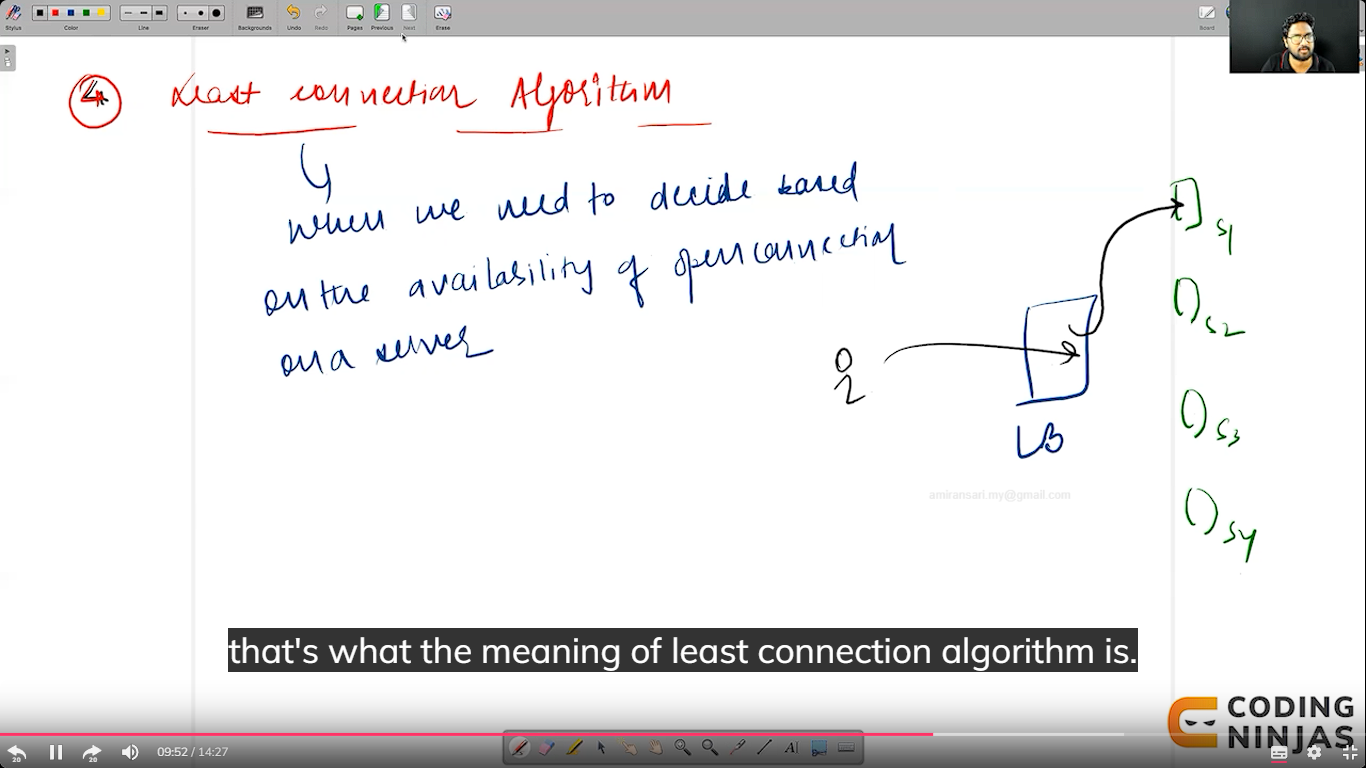 Stylus
Color
Line
Eraser
Backgrounds
Undo
Redo
Pages
Previous
Next
Erase
Board
4
Least connection Algorithm
when we need to decide based
on the availability of open connection
on a server
S1
S2
S3
S4
LB
amiransari.my@gmail.com
that's what the meaning of least connection algorithm is.
CODING
NINJAS
20
20
09:52 / 14:27